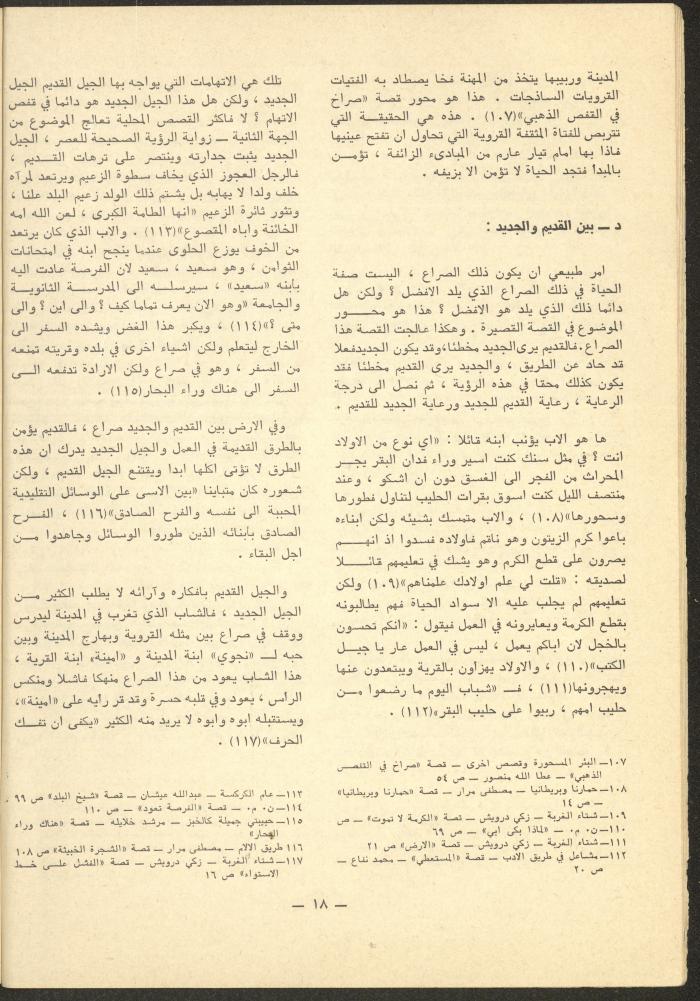 المدينة وربيبها يتخذ من المهنة فخا يصطاد به الفتيات
القرويات الساذجات . هذا هو محور قصة «صراخ
في القفص الذهبي»(١٠٧) . هذه هي الحقيقة التي
تتربص للفتاة المثقفة القروية التي تحاول ان تفتح عينيها
فاذا بها امام تيار عارم من المبادىء الزائفة ، تؤمن
بالمبدأ فتجد الحياة لا تؤمن الا بزيفه .
د ــ بين القديم والجديد :
امر طبيعي ان يكون ذلك الصراع ، اليست صفة
الحياة في ذلك الصراع الذي يلد الافضل ؟ ولكن هل
دائما ذلك الذي يلد هو الافضل ؟ هذا هو محور
الموضوع في القصة القصيرة . وهكذا عالجت القصة هذا
الصراع.فالقديم يرى الجديد مخطئا،وقد يكون الجديدفعلا
قد حاد عن الطريق ، والجديد يرى القديم مخطئا فقد
يكون كذلك محقا في هذه الرؤية ، ثم نصل الى درجة
الرعاية ، رعاية القديم للجديد ورعاية الجديد للقديم .
ها هو الاب يؤنب ابنه قائلا : «اي نوع من الاولاد
انت ؟ في مثل سنك كنت اسير وراء فدان البقر يجر
المحراث من الفجر الى الغسق دون ان اشكو ، وعند
منتصف الليل كنت اسوق بقرات الحليب لتناول فطورها
وسحورها»(١٠٨) ، والاب متمسك بشيئه ولكن ابناءه
باعوا كرم الزيتون وهو ناقم فاولاده فسدوا اذ انهم
يصرون على قطع الكرم وهو يشك في تعليمهم قائلا
لصديقه : «قلت لي علم اولادك علمناهم»(١٠٩) ولكن
تعليمهم لم يجلب عليه الا سواد الحياة فهم يطالبونه
بقطع الكرمة ويعايرونه في العمل فيقول : «انكم تحسون
بالخجل لان اباكم يعمل ، ليس في العمل عار يا جيل
الكتب»(١١٠) ، والاولاد يهزأون بالقرية ويبتعدون عنها
ويهجرونها(١١١) ، فـ «شباب اليوم ما رضعوا من
حليب امهم ، ربيوا على حليب البقر»(١١٢) .
١٠٧ــ البئر المسحورة وقصص اخرى ــ قصة «صراخ في القفص
الذهبي» ــ عطا الله منصور ــ ص ٥٤
١٠٨ــ حمارنا وبريطانيا ــ مصطفى مرار ــ قصة «حمارنا وبريطانيا»
ــ ص ١٤
١٠٩ــ شتاء الغربة ــ زكي درويش ــ قصة «الكرمة لا تموت» ــ ص
١١٠ــ ن. م. ــ «لماذا بكى ابي» ــ ص ٦٩
١١١ــ شتاء الغربة ــ زكي درويش ــ قصة «الارض» ص ٢١
١١٢ــ مشاعل في طريق الادب ــ قصة «المستعطي» ــ محمد نفاع ــ
ص ٢٠
تلك هي الاتهامات التي يواجه بها الجيل القديم الجيل
الجديد ، ولكن هل هذا الجيل الجديد هو دائما في قفص
الاتهام ؟ لا فاكثر القصص المحلية تعالج الموضوع من
الجهة الثانية ــ زواية الرؤية الصحيحة للعصر ، الجيل
الجديد يثبت جدارته وينتصر على ترهات القديم ،
فالرجل العجوز الذي يخاف سطوة الزعيم ويرتعد لمرآه
خلف ولدا لا يهابه بل يشتم ذلك الولد زعيم البلد علنا ،
وتثور ثائرة الزعيم «انها الطامة الكبرى ، لعن الله امه
الخائنة واباه المقصوع»(١١٣) . والاب الذي كان يرتعد
من الخوف يوزع الحلوى عندما ينجح ابنه في امتحانات
الثوامن ، وهو سعيد ، سعيد لان الفرصة عادت اليه
بابنه «سعيد» ، سيرسله الى المدرسة الثانوية
والجامعة «وهو الان يعرف تماما كيف ؟ والى اين ؟ والى
متى ؟»(١١٤) ، ويكبر هذا الغض ويشده السفر الى
الخارج ليتعلم ولكن اشياء اخرى في بلده وقريته تمنعه
من السفر ، وهو في صراع ولكن الارادة تدفعه الى
السفر الى هناك وراء البحار(١١٥) .
وفي الارض بين القديم والجديد صراع ، فالقديم يؤمن
بالطرق القديمة في العمل والجيل الجديد يدرك ان هذه
الطرق لا تؤتى اكلها ابدا ويقتنع الجيل القديم ، ولكن
شعوره كان متباينا «بين الاسى على الوسائل التقليدية
المحببة الى نفسه والفرح الصادق»(١١٦) ، الفرح
الصادق بأبنائه الذين طوروا الوسائل وجاهدوا من
اجل البقاء .
والجيل القديم بافكاره وآرائه لا يطلب الكثير من
الجيل الجديد ، فالشاب الذي تغرب في المدينة ليدرس
ووقف في صراع بين مثله القروية وبهارج المدينة وبين
حبه لـ «نجوي» ابنة المدينة و «امينة» ابنة القرية ،
هذا الشاب يعود من هذا الصراع منهكا فاشلا ومنكس
الراس ، يعود وفي قلبه حسرة وقد قر رأيه على «امينة»،
ويستقبله ابوه وابوه لا يريد منه الكثير «يكفى ان تفك
الحرف»(١١٧) .
١١٣ــ عام الكركسة ــ عبدالله عيشان ــ قصة «شيخ البلد» ص ٩٩
١١٤ــ ن. م. ــ قصة «الفرصة تعود» ــ ص ١١٠
١١٥ــ حبيبتي جميلة كالخبز ــ مرشد خلايله ــ قصة «هناك وراء
البحار»
١١٦ طريق الالام ــ مصطفى مرار ــ قصة «الشجرة الخبيثة» ص ١٠٨
١١٧ــ شتاء الغربة ــ زكي درويش ــ قصة «الفشل على خط
الاستواء» ص ١٦
ــ ١٨ ــ